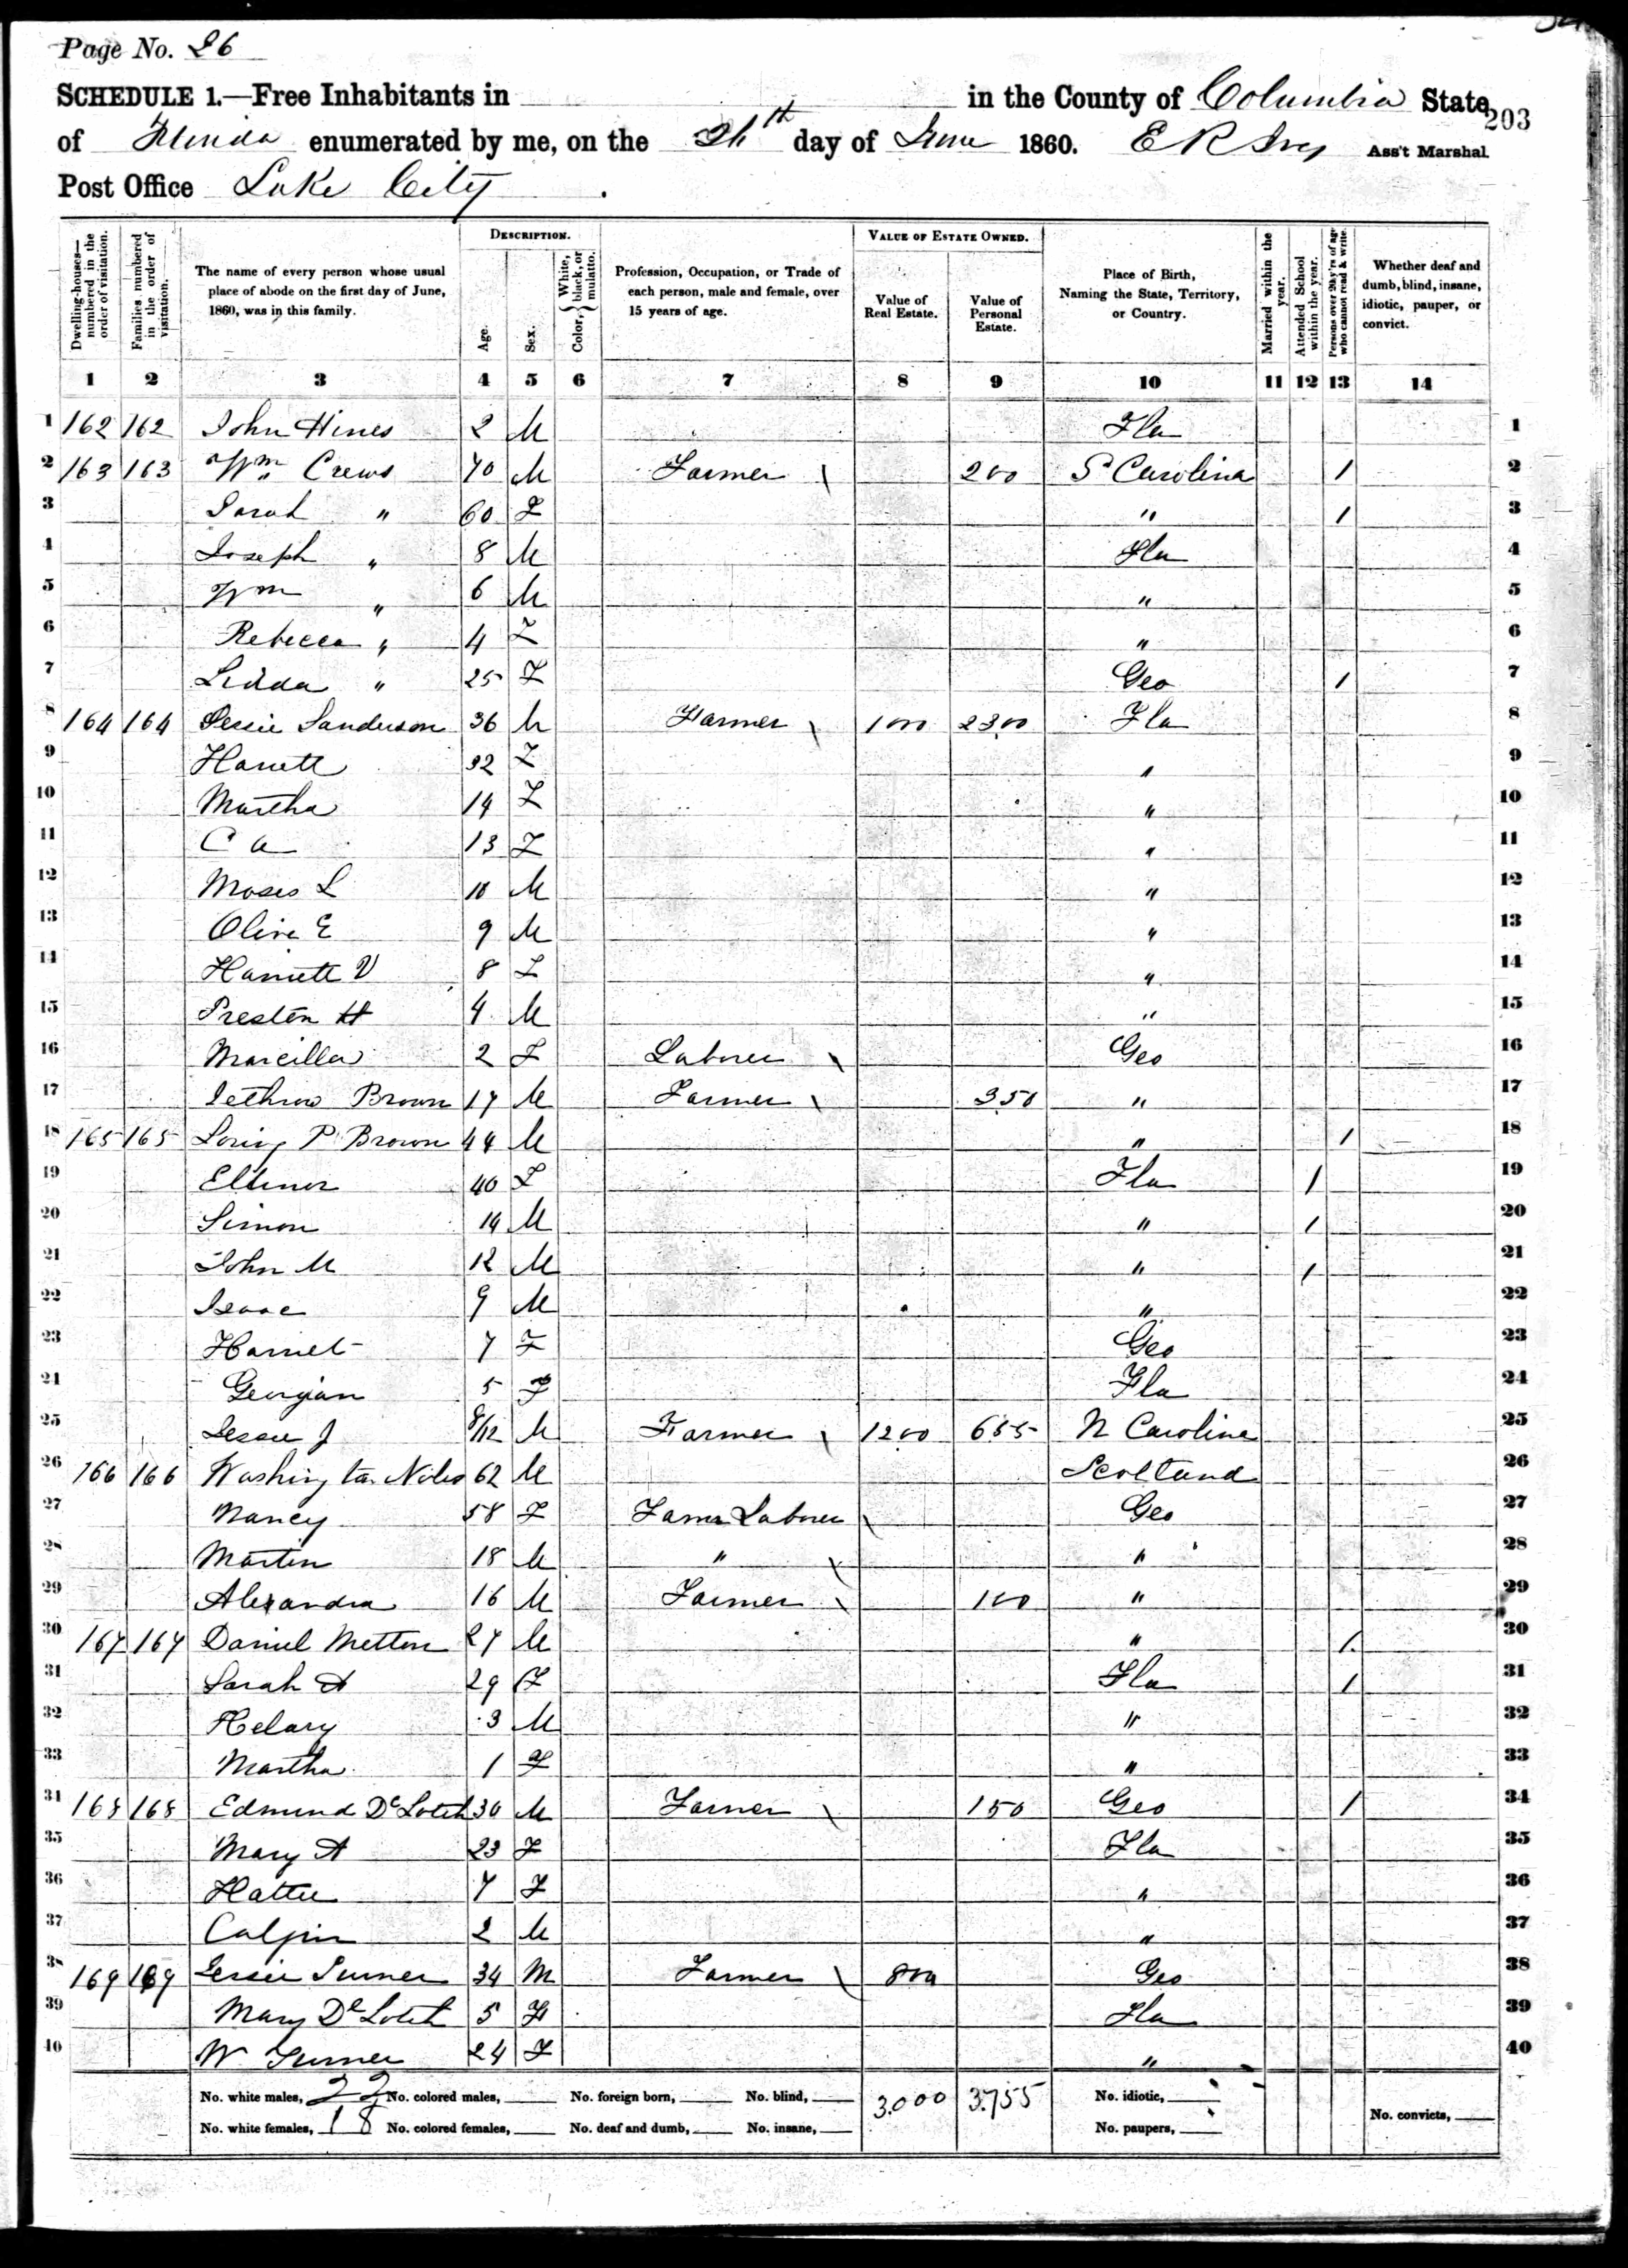 Page No. 26
SCHEDULE 1.—Free Inhabitants in in the County of Columbia State
203
of Florida enumerated by me, on the day of June 1860. E R Ivey Ass't Marshal
Post Office Lake City
Dwelling-houses—numbered in the order of visitation.
Families numbered in the order of visitation.
The name of every person whose usual place of abode on the first day of June, 1860, was in this family.
DESCRIPTION.
Age.
Sex.
Color, { White, black, or mulatto.
Profession, Occupation, or Trade of each person, male and female, over 15 years of age.
VALUE OF ESTATE OWNED.
Value of Real Estate.
Value of Personal Estate.
Place of Birth, Naming the State, Territory, or Country.
Married within the year.
Attended School within the year.
Persons over 20 y'rs of age who cannot read & write.
Whether deaf and dumb, blind, insane, idiotic, pauper, or convict.
1 2 3 4 5 6 7 8 9 10 11 12 13 14
1 162 162 John Hines 2 M Fla 1
2 163 163 Wm Crews 70 M Farmer 200 S Carolina / 2
3 Sarah " 60 F " / 3
4 Joseph " 8 M Fla 4
5 Wm " 6 M " 5
6 Rebecca " 4 F " 6
7 " 25 F Geo / 7
8 164 164 Jessie Sanderson 36 M Farmer 1000 2300 Fla 8
9 Harrett 32 F " 9
10 Martha 14 F " 10
11 C A 13 F " 11
12 Moses L 10 M " 12
13 Olive E 9 M " 13
14 Harriett V 8 F " 14
15 Preston H 4 M " 15
16 Marcilla 2 F Laborer Geo 16
17 Jethrow Brown 17 M Farmer 350 " 17
18 165 165 Loring P Brown 44 M " / 18
19 Ellenor 40 F Fla / 19
20 Simon 14 M " / 20
21 John M 12 M " / 21
22 Isaac 9 M " 22
23 Harriet 7 F Geo 23
24 Georgian 5 F Fla 24
25 Jessee J 8/12 M Farmer 1200 655 N Carolina 25
26 166 166 Washington Niles 62 M Scotland 26
27 Nancy 58 F Farm Laborer Geo 27
28 Martin 18 M " " 28
29 Alexandra 16 M Farmer 100 " 29
30 167 167 Daniel Metton 27 M " / 30
31 Sarah A 29 F Fla / 31
32 Helary 3 M " 32
33 Martha 1 F " 33
34 168 168 Edmund De Loteh 30 M Farmer 150 Geo / 34
35 Mary A 23 F Fla 35
36 Hattie 7 F " 36
37 2 M " 37
38 169 169 Jessie Turner 34 M Farmer 800 Geo 38
39 Mary De Loteh 5 F Fla 39
40 W Turner 24 F " 40
No. white males, 22 No. colored males, No. foreign born, No. blind, 3.000 3.755 No. idiotic,
No. white females, 18 No. colored females, No. deaf and dumb, No. insane, No. paupers, No. convicts,